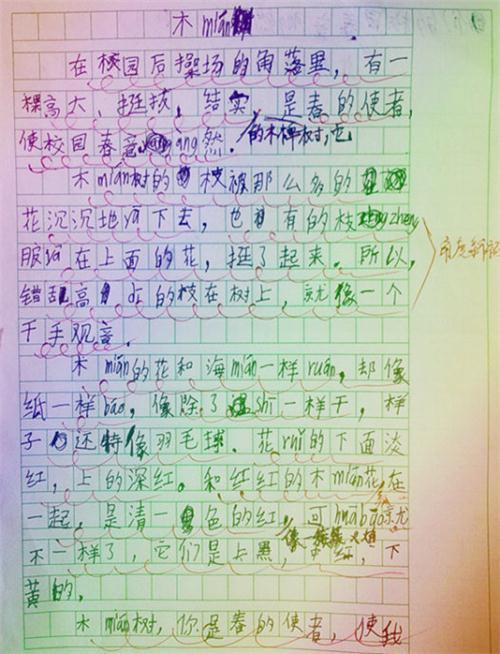 木mián
在校园后操场的角落里，有一
棵高大、挺拔、结实，是春的使者，
使校园春意àng然．的木棉树，它
木mián树的枝被那么多的
花沉沉地下去，也有的枝zhēng
服在上面的花，挺了起来．所以，
错乱高的枝在树上，就像一个
千手观音．
木mián的花和海mián一样ruǎn，却像
纸一样báo，像除了shī一样干，样
子还特像羽毛球．花ruǐ的下面淡
红，上的深红。和红红的木mián花在
一起，是清一色的红，可huābāo就
像一簇簇火焰
不一样了，它们是上黑，中红，下
黄的．
木mián树，你是春的使者，使我